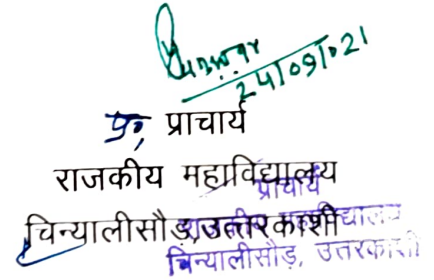 24/09/021
प्र, प्राचार्य
राजकीय महाविद्यालय
चिन्यालीसौड़,उत्तरकाशी
प्राचार्य
राजकीय महाविद्यालय
चिन्यालीसौड़, उत्तरकाशी